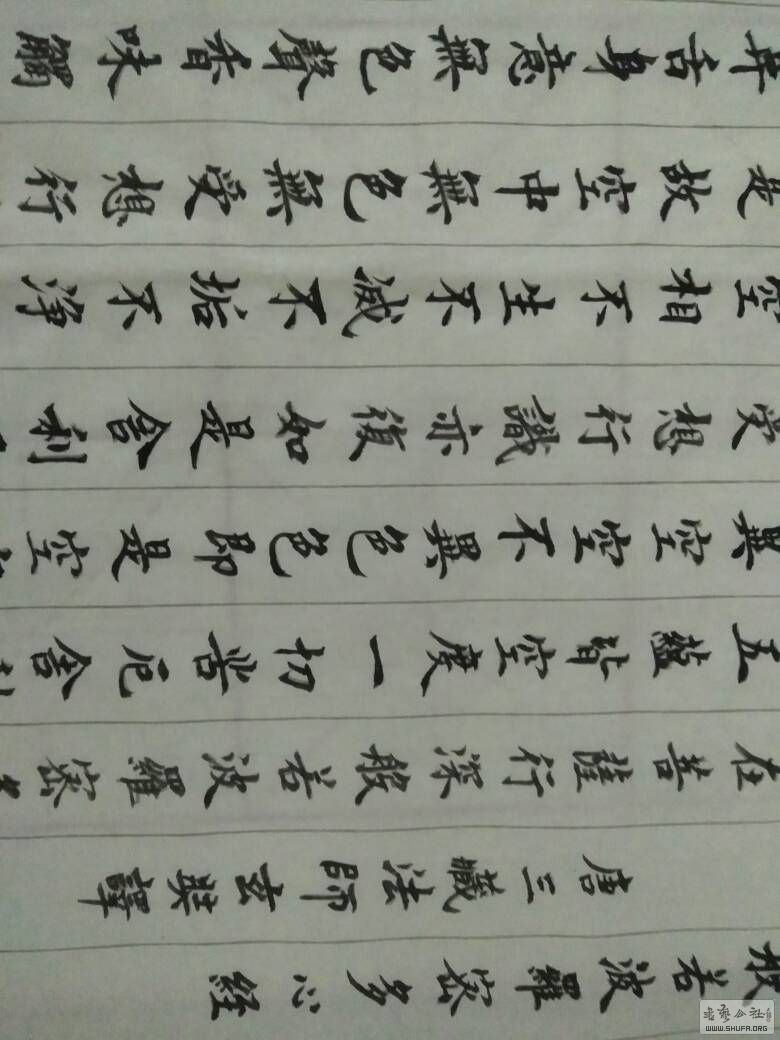 般若波羅密多心經
唐三藏法師玄奘譯
在菩薩行深般若波羅密多
五蘊皆空度一切苦厄舍利
異空空不異色色即是空
受想行識亦復如是舍利
空相不生不滅不垢不淨
是故空中無色無受想行
鼻舌身意無色聲香味觸
書藝公社
WWW.SHUFA.ORG